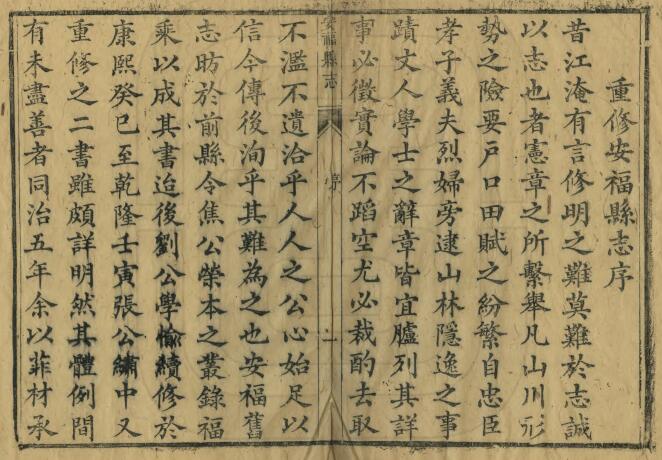 重修安福縣志序
昔江淹有言修明之難莫難於志誠
以志也者憲章之所繫舉凡山川形
勢之險要戶口田賦之紛繁自忠臣
孝子義夫烈婦旁逮山林隱逸之事
蹟文人學士之辭章皆宜臚列其詳
事必徵實論不蹈空尤必裁酌去取
安福縣志
序
一
不濫不遺洽乎人人之公心始足以
信今傳後洵乎其難為之也安福舊
志昉於前縣令焦公榮本之叢錄福
乘以成其書迨後劉公學愉續修於
康熙癸巳至乾隆壬寅張公繡中又
重修之二書雖頗詳明然其體例間
有未盡善者同治五年余以菲材承